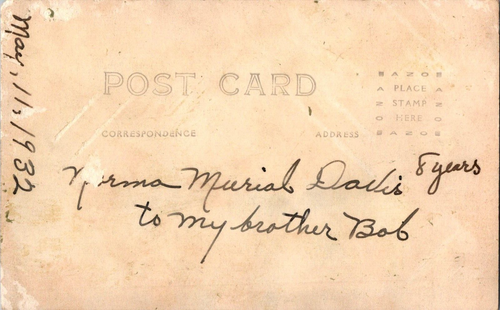 May, 11, 1932
POST CARD
CORRESPONDENCE
ADDRESS
AZO
PLACE
STAMP
HERE
AZO
Norma Meurial Davis 8 years
to my brother Bob